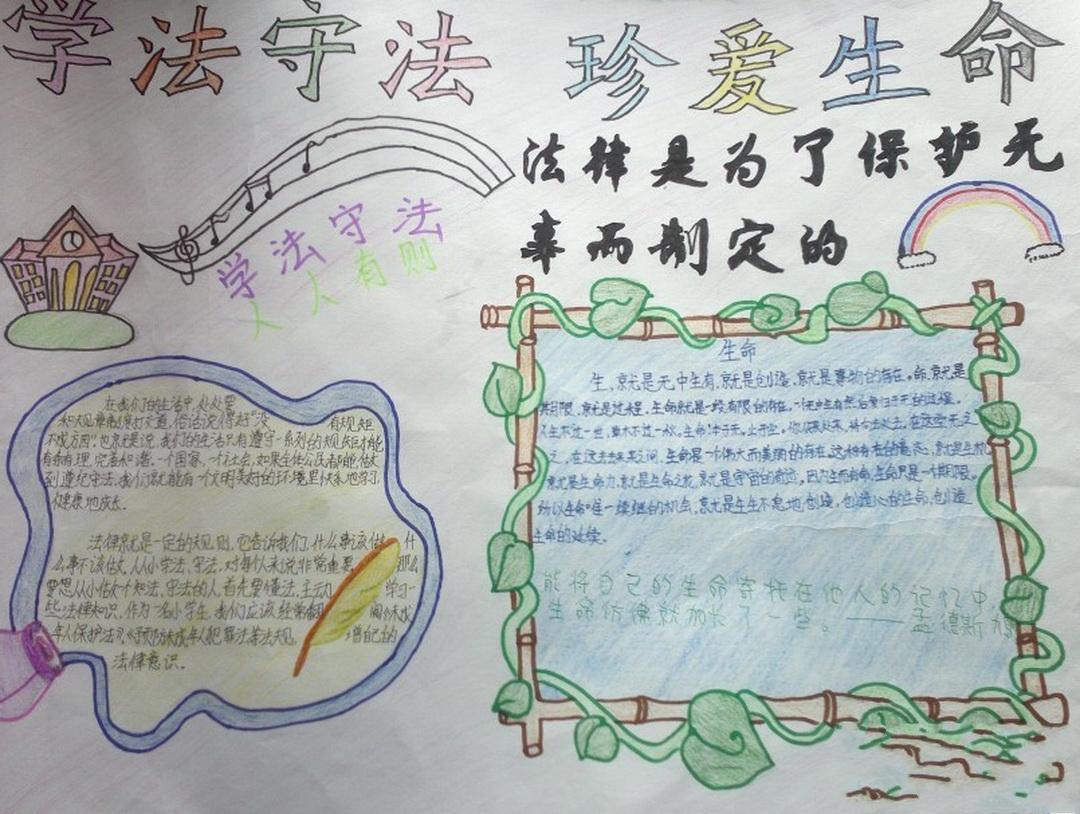 学法守法 珍爱生命
法律是为了保护无
辜而制定的
学法守法
人人有则
在我们的生活中,处处要
和规章制度打交道,俗话说得好"没有规矩
不成方圆",也就是说,我们的生活只有遵守一系列的规矩才能
有条有理,完善和谐。一个国家,一个社会,如果全体公民都能做
到遵纪守法,我们就能有一个文明美好的环境里快乐地学习,
健康地成长。
法律就是一定的规则,它告诉我们,什么事该做,什
么事不该做,从小学法、守法,对每个人来说非常重要,那么
要想从小做个知法、守法的人,首先要懂法,主动学习一
些法律知识,作为一名小学生,我们应该经常翻阅《未成
年人保护法》、《预防未成年人犯罪法》等法规,增记的
法律意识。
生命
生,就是无中生有,就是创造,就是事物的存在。命,就是
期限,就是过程。生命就是一段有限的存在。
在这去去来来之间,生命是一个伟大而美丽的存在,这种存在的静态,就是生机
就是生命力,就是生命之流,就是宇宙的奇迹。因为生而有命,生命只是一个期限。
所以生命唯一续继的机会,就是生生不息地创造,创造心的生命,创造
生命的延续。
能将自己的生命寄托在他人的记忆中,
生命仿佛就加长了一些。——孟德斯鸠